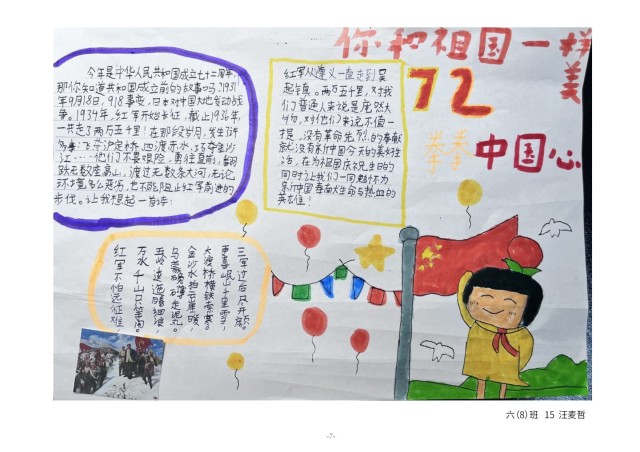 你和祖国一样
美
72
拳拳中国心
今年是中华人民共和国成立七十二周年,
那你知道共和国成立前的故事吗?1931
年9月18日,918事变,日本对中国大地发动战
争。1934年,红军开始长征,截止1936年,
一共走了两万五千里!在那段岁月,发生许
多事:飞夺泸定桥,四渡赤水,巧夺金沙
江……他们不畏艰险,勇往直前,翻
跃无数座高山,渡过无数条大河,无论
环境多么恶劣,也不能阻止红军前进的
步伐。让我想起一首诗:
红军从遵义一直走到吴
起镇。两万五千里,对我
们普通人来说是庞然大
物,对他们来说不值一
提,没有革命先烈的奉献
就没有新中国今天的美好生
活,在为祖国庆祝生日的
同时让我们一同缅怀为
新中国奉献生命与热血的
英雄们!
红军不怕远征难,
万水千山只等闲。
五岭逶迤腾细浪,
乌蒙磅礴走泥丸。
金沙水拍云崖暖,
大渡桥横铁索寒。
更喜岷山千里雪,
三军过后尽开颜。
六(8)班 15 汪麦哲
-7-